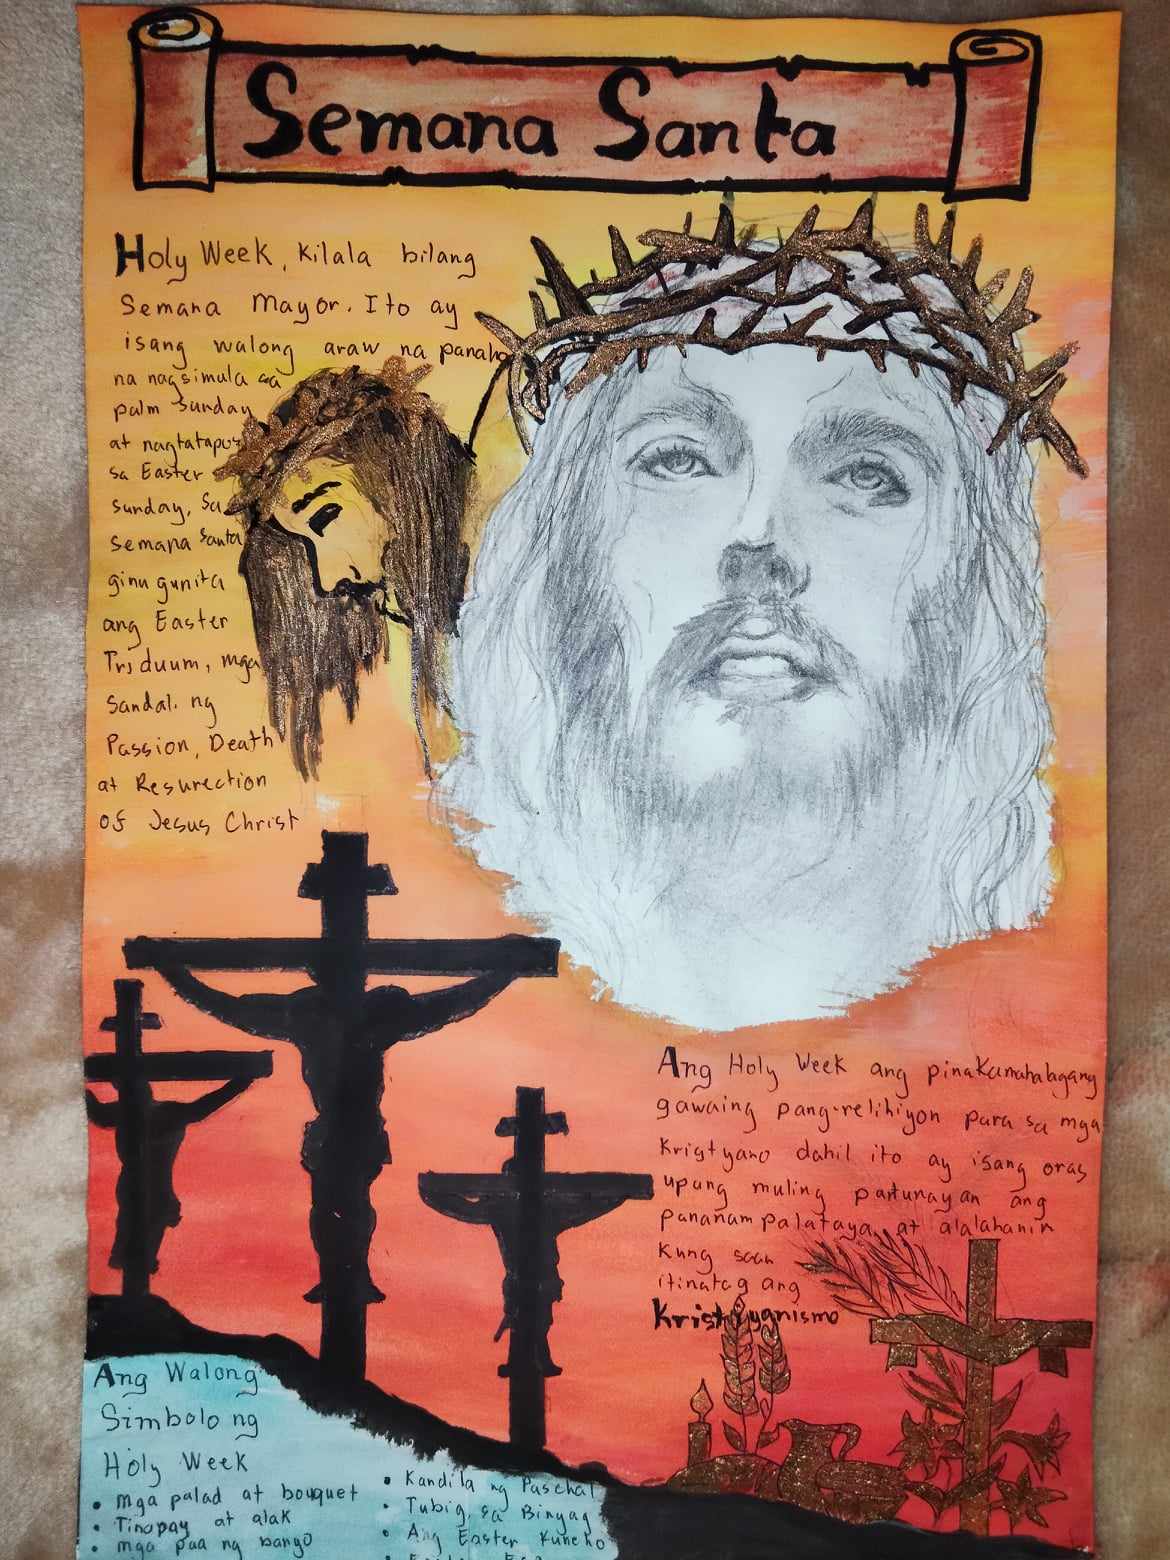 Semana Santa
Holy Week, kilala bilang
Semana Mayor. Ito ay
isang walong araw na panaho
na nagsimula sa
palm Sunday
at nagtatapos
sa Easter
sunday, Sa
semana Santa
ginu gunita
ang Easter
Triduum, mga
Sandali ng
Passion, Death
at Resurection
of Jesus Christ
Ang Holy Week ang pinakamahalagang
gawaing pang-relihiyon para sa mga
Kristyano dahil ito ay isang oras
upang muling patunayan ang
pananampalataya, at alalahanin
kung saan
itinatag ang
Kristiyanismo
Ang Walong
Simbolo ng
Holy Week
• mga palad at bouquet
• Tinapay at alak
• mga paa ng bango
• Kandila ng Paschal
• Tubig sa Binyag
• Ang Easter Kuneho